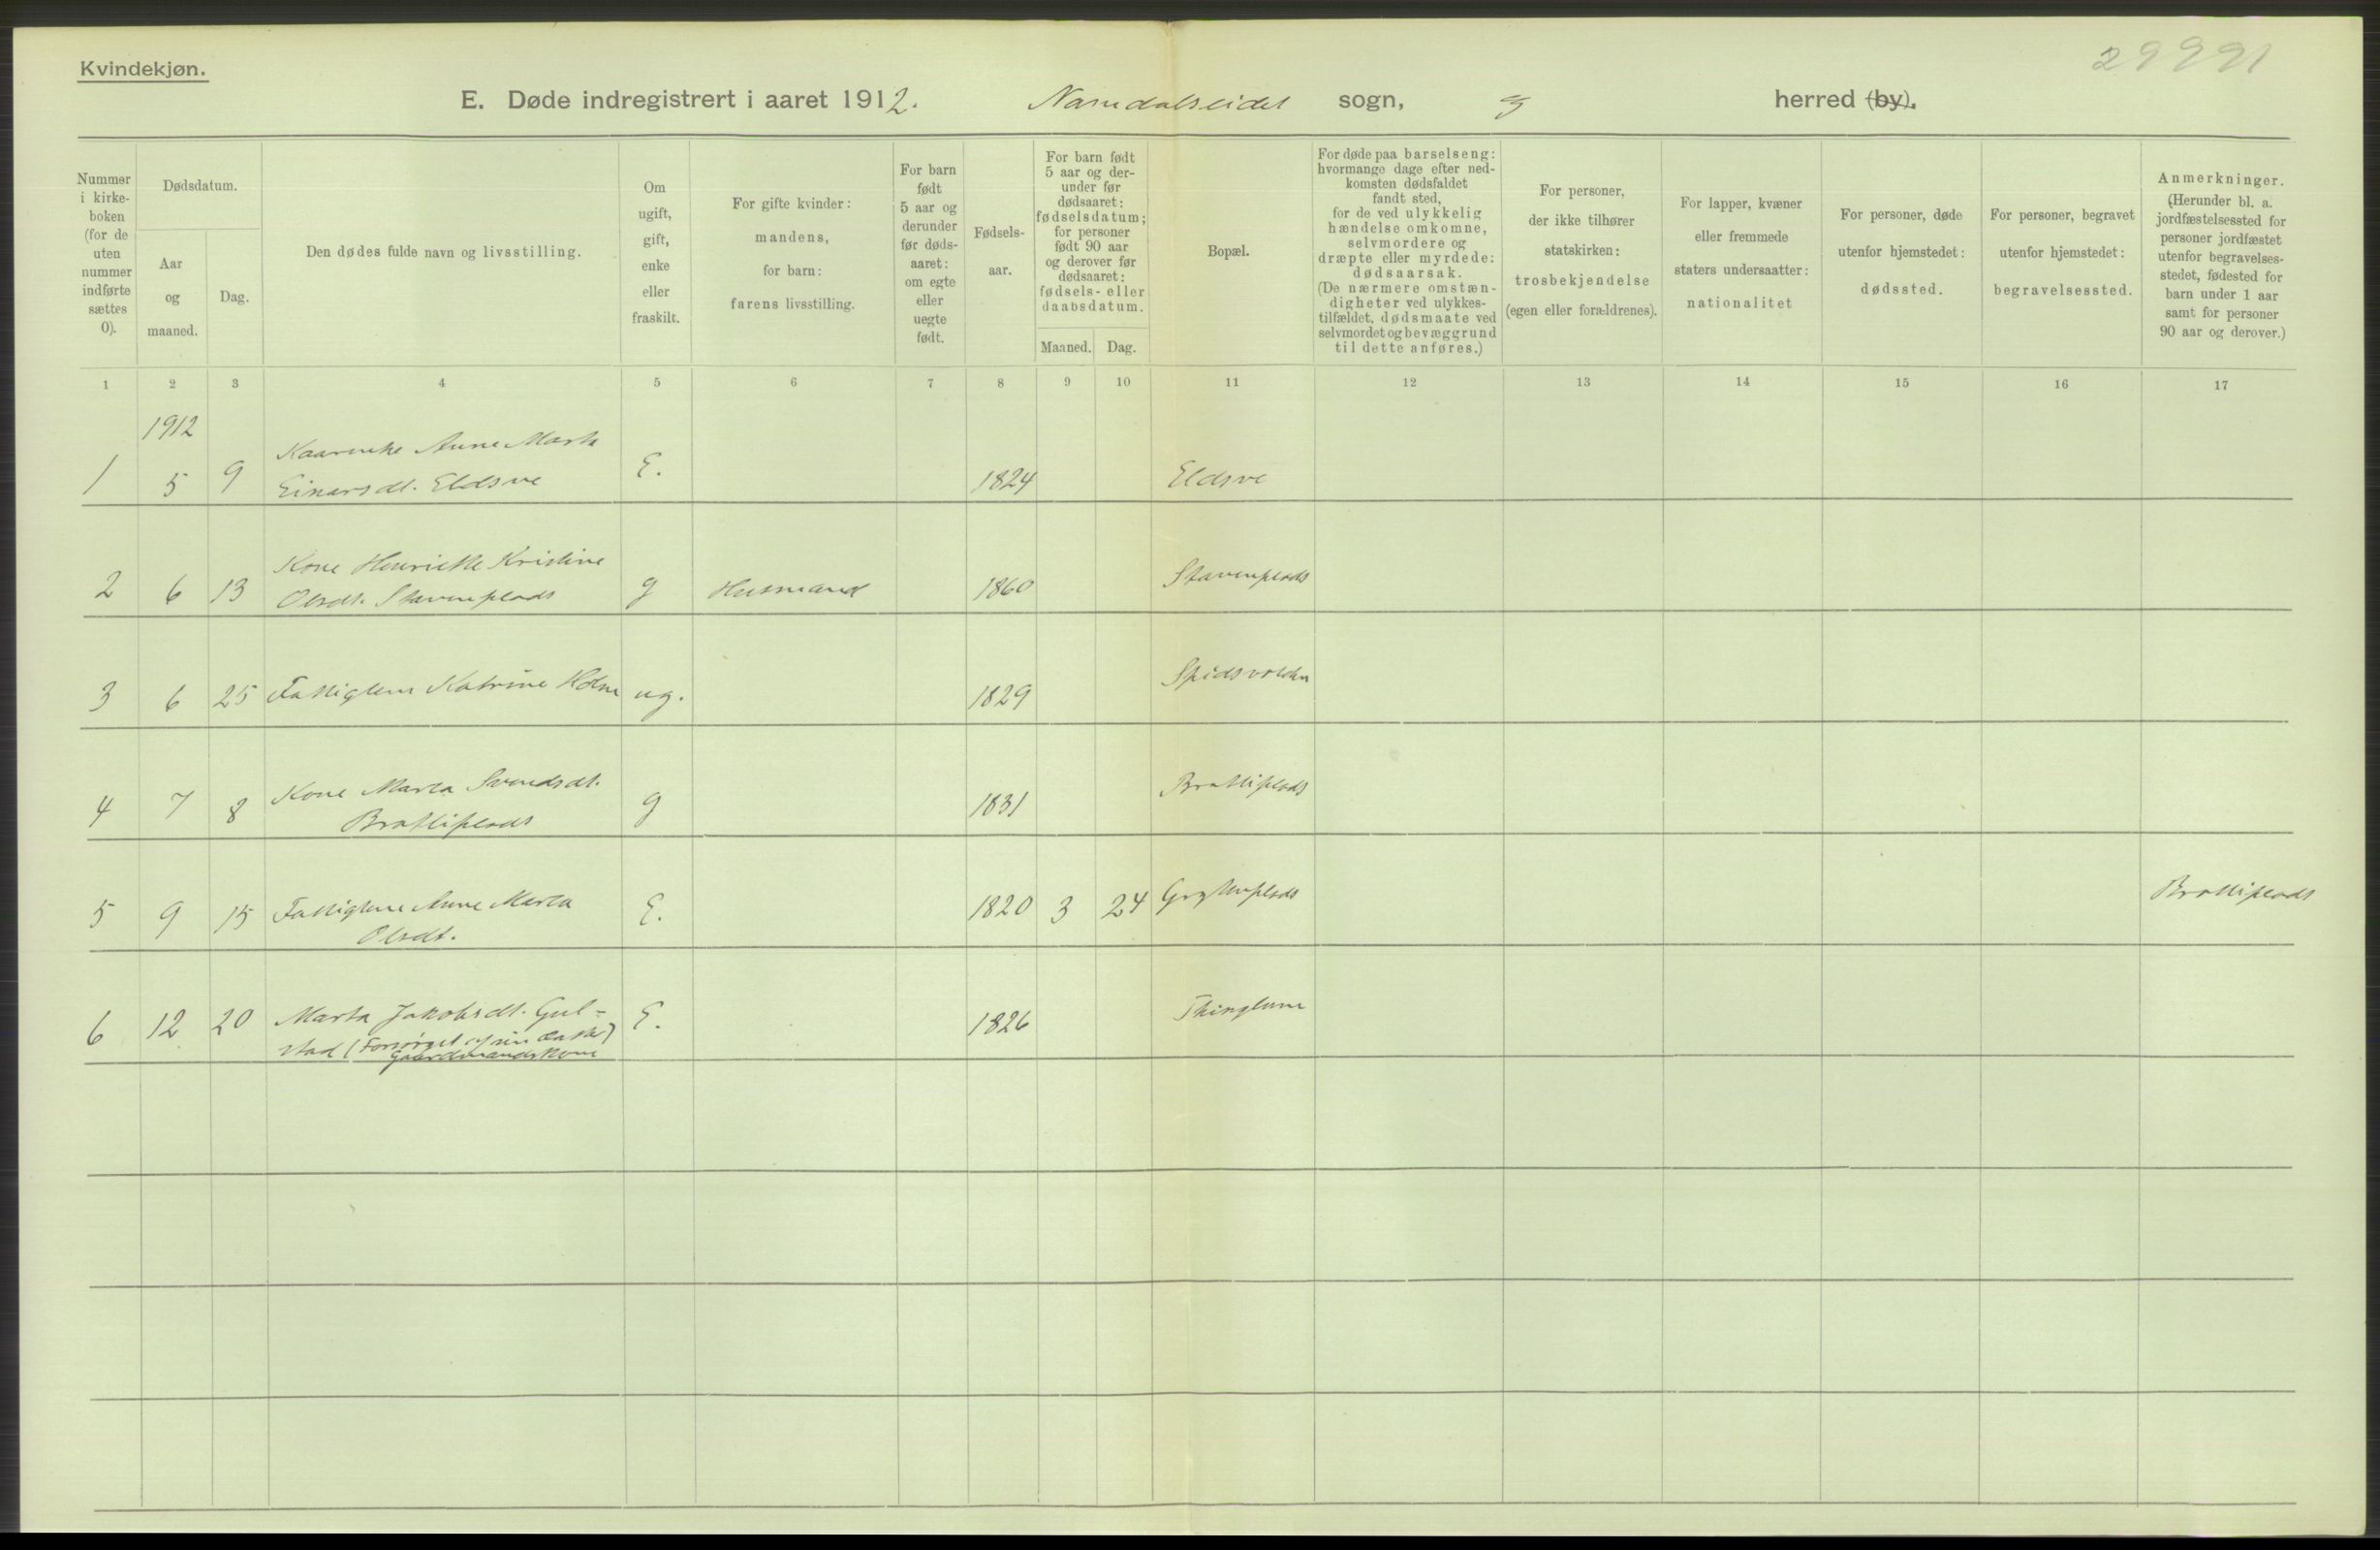 Kvindekjøn.
29991
E. Døde indregistrert i aaret 1912. Namdalseidet sogn, herred (by).
Nummer i kirke- boken (for de uten nummer indførte sættes 0).
Dødsdatum.
Aar og maaned.
Dag.
Den dødes fulde navn og livsstilling.
Om ugift, gift, enke eller fraskilt.
For gifte kvinder: mandens, for barn: farens livsstilling.
For barn født 5 aar og derunder før døds- aaret: om egte eller uegte født.
Fødsels- aar.
For barn født 5 aar og der- under før dødsaaret: fødselsdatum; for personer født 90 aar og derover før dødsaaret: fødsels- eller daabsdatum.
Maaned. Dag.
Bopæl.
For døde paa barselseng: hvormange dage efter ned- komsten dødsfaldet fandt sted, for de ved ulykkelig hændelse omkomne, selvmordere og dræpte eller myrdede: dødsaarsak. (De nærmere omstæn- digheter ved ulykkes- tilfældet, dødsmaate ved selvmordet og bevæggrund til dette anføres.)
For personer, der ikke tilhører statskirken: trosbekjendelse (egen eller forældrenes).
For lapper, kvæner eller fremmede staters undersaatter: nationalitet
For personer, døde utenfor hjemstedet: dødssted.
For personer, begravet utenfor hjemstedet: begravelsessted.
Anmerkninger. (Herunder bl. a. jordfæstelsessted for personer jordfæstet utenfor begravelses- stedet, fødested for barn under 1 aar samt for personer 90 aar og derover.)
1 2 3 4 5 6 7 8 9 10 11 12 13 14 15 16 17
1912
Anne Marta
1 5 9 Einarsdt. Eldsve E. 1824 Eldsve
Kone Henriette Kristine
2 6 13 Olsdt. Stavenplads g Husmand 1860 Stavenplads
3 6 25 Fattiglem Katrine Holm ug. 1829
Kone Marta Svendsdt.
4 7 8 Bratliplads g 1831 Bratliplads
5 9 15 Fattiglem Anne Marta E. 1820 3 24 Bratliplads
Olsdt.
6 12 20 Marta Jakobsdt. Gul- E. 1826
stad (Forsørget af sin
Gaardmandskone